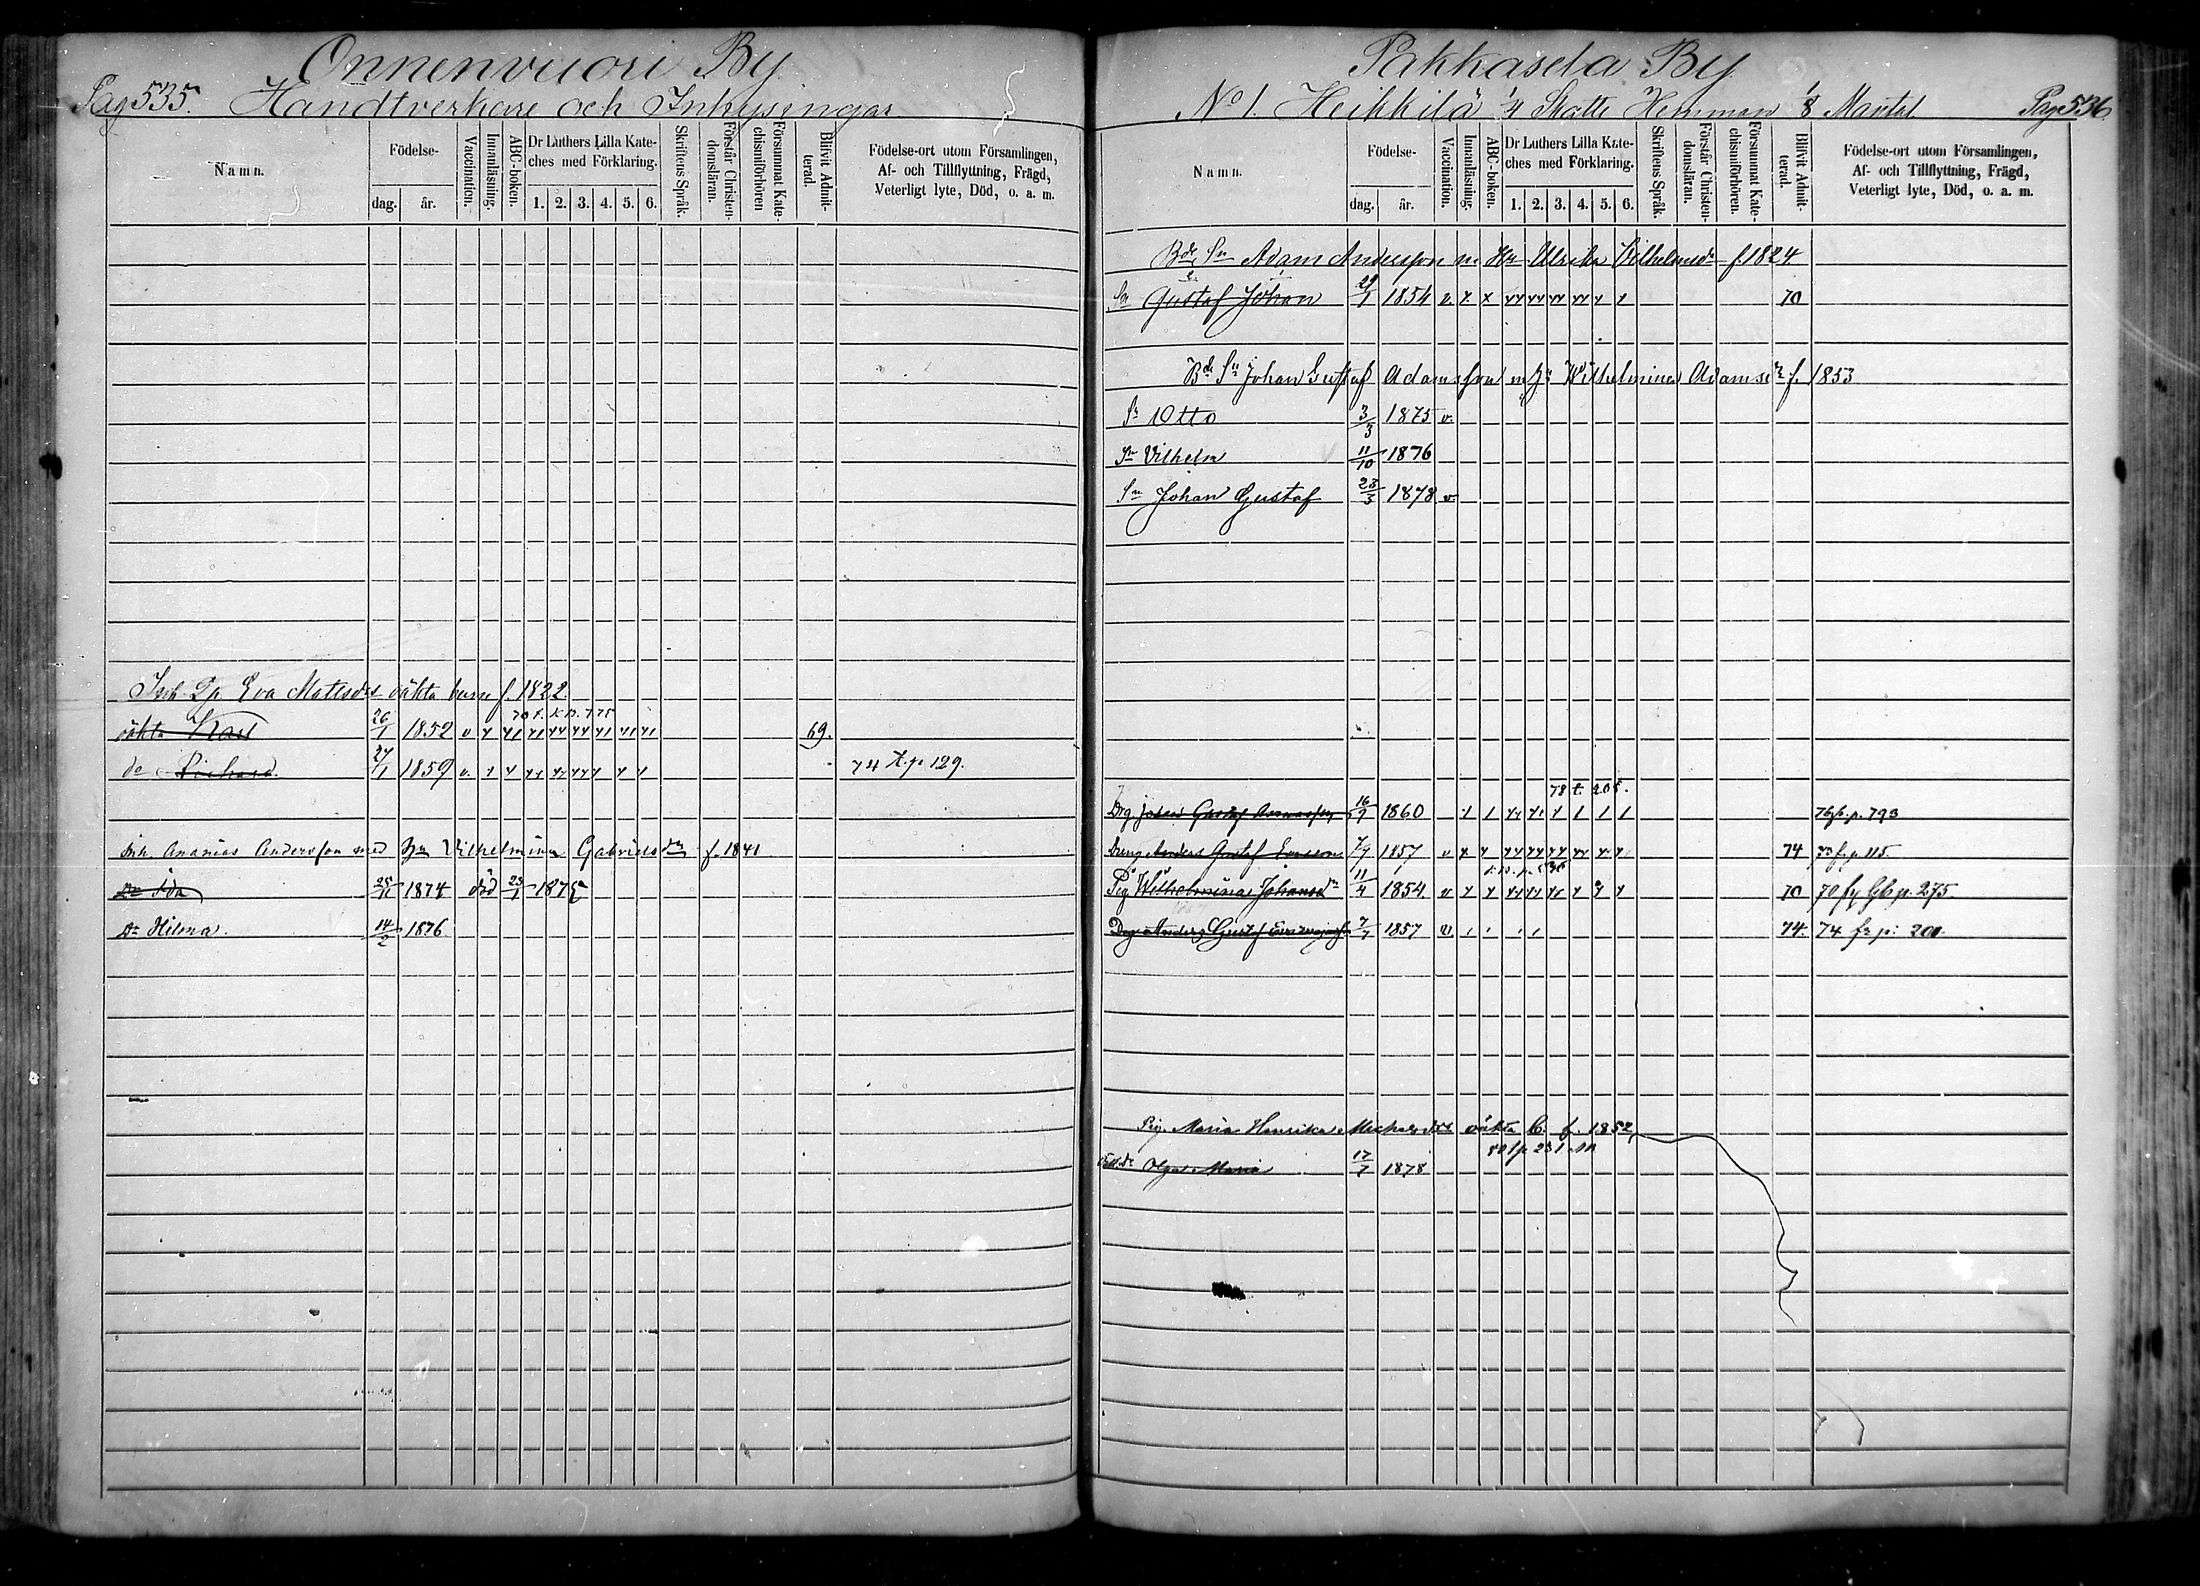 Onnenvuori By
Pag 535. Handtverkare och Inhysingar
Namn. Födelse- dag. år. Vaccination. Innanläsning. ABC-boken. Dr Luthers Lilla Kateches med Förklaring. 1. 2. 3. 4. 5. 6. Skriftens Språk. Förstår Christendomsläran. Försummat Katechismiförhören Blifvit Admitterad. Födelse-ort utom Församlingen, Af- och Tillflyttning, Frägd, Veterligt lyte, Död, o. a. m.
Inh. Eva Matisdrs oäkta barn f. 1822.
oäkta Karl 26/1 1852 v 69.
do Richard. 27/1 1859 v. 74 p 129.
Inh. Ananias Andersson med Hu Vilhelmina Gabrielsdr f. 1841
Dr Ida 1874 död 23/1 1875
Dr Hilma. 14/2 1876.
Pakkasela By
No 1. Heikkilä 1/4 Skatte Hemman 1/8 Mantal Pag 536.
Namn. Födelse- dag. år. Vaccination. Innanläsning. ABC-boken. Dr Luthers Lilla Kateches med Förklaring. 1. 2. 3. 4. 5. 6. Skriftens Språk. Förstår Christendomsläran. Försummat Katechismiförhören. Blifvit Admitterad. Födelse-ort utom Församlingen, Af- och Tillflyttning, Frägd, Veterligt lyte, Död, o. a. m.
Bde Sn Adam Andersson m Hu Ulrika Vilhelmsdr f. 1824
Sn Gustaf Johan 1854 v. 70
Bde Sn Johan Gustaf Adamsson m Hu Wilhelmina Adamsdr f. 1853
Sn Otto 3/3 1875 v.
Sn Vilhelm 11/10 1876
Sn Johan Gustaf 23/3 1878 v.
78 t. 205.
Drg. Johan Gustaf 16/9 1860 76 f. p. 793
Dreng Anders Gustaf 1857 v 74 73 fr p 115.
Pig Wilhelmina Johansdr 11/4 1854. v 70 70 fr p. 275.
Drg Anders Gustaf 1857 v. 74. 74 fr p. 201.
Pig. Maria Henrika oäkta b. f. 1852
80 f p 231
Dr Olga Maria 17/7 1878